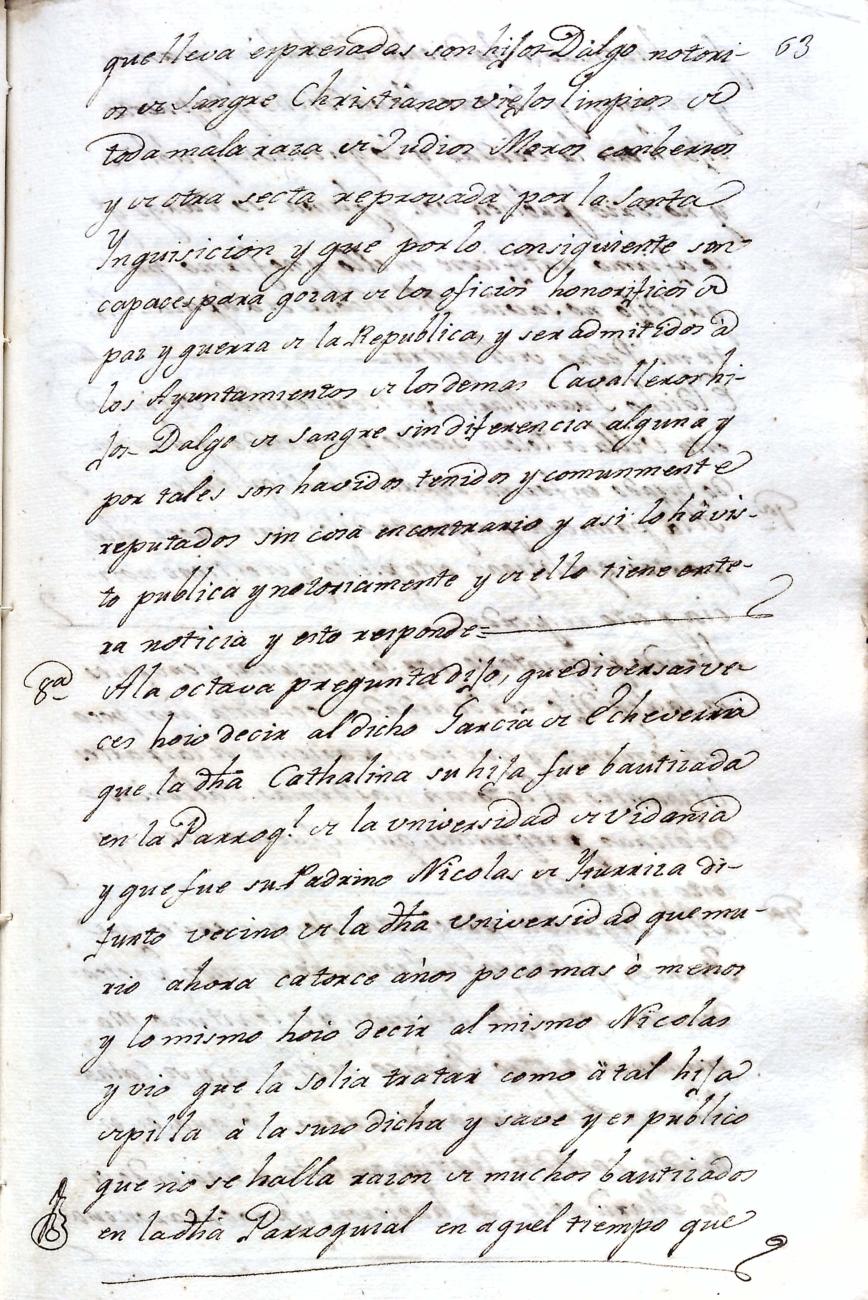 que lleva expresadas son hijos Dalgo notori- 63
os de Sangre Christianos viejos limpios de
toda mala raza de Judios Moros conbersos
y de otra secta reprovada por la Santa
Ynquisicion y que por lo consiguiente son
capaces para gozar de los oficios honorificos de
paz y guerra de la Republica, y ser admitidos à
los Ayuntamientos de los demas Cavalleros hi-
jos Dalgo de sangre sin diferencia alguna y
por tales son havidos tenidos y comunmente
reputados sin cosa encontrario y asi lo hà vis-
to publica y notoriamente y de ello tiene ente-
ra noticia y esto responde=
8ª A la octava pregunta dijo, que diversas ve-
ces hoio decir al dicho Garcia de Echeverria
que la dha Cathalina su hija fue bautizada
en la Parroql. de la Universidad de Vidania
y que fue su Padrino Nicolas de Yturriza di-
funto vecino de la dha Universidad que mu-
rio ahora catorce años poco mas ò menos
y lo mismo hoio decir al mismo Nicolas
y vio que la solia tratar como à tal hija
de pilla à la suso dicha y save y es publico
que no se halla razon de muchos bautizados
en la dha Parroquial en aquel tiempo que